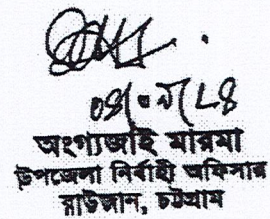 অংগ্যজাই মারমা
উপজেলা নির্বাহী অফিসার
রাউজান, চট্টগ্রাম